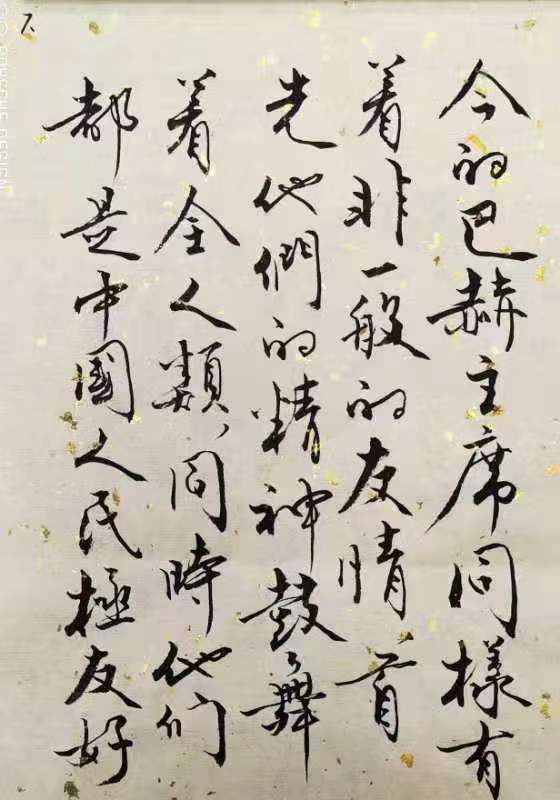 今的巴赫主席同樣有
着非一般的友情首
先他們的精神鼓舞
着全人類，同時他们
都是中國人民極友好
7.